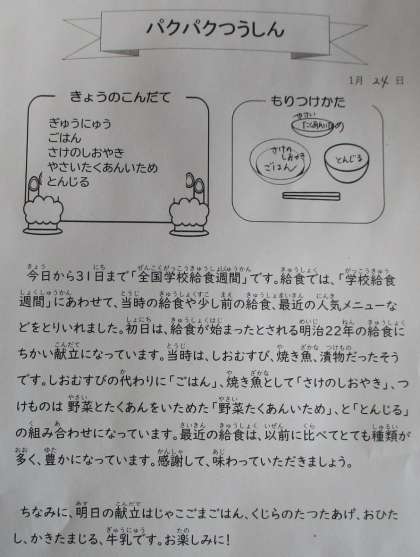 パクパクつうしん
1月 24 日
きょうのこんだて
ぎゅうにゅう
ごはん
さけのしおやき
やさいたくあんいため
とんじる
もりつけかた
やさい
たくあんいため
さけの
しおやき
ごはん
とんじる
今日から31日まで「全国学校給食週間」です。給食では、「学校給食
週間」にあわせて、当時の給食や少し前の給食、最近の人気メニューな
どをとりいれました。初日は、給食が始まったとされる明治22年の給食に
ちかい献立になっています。当時は、しおむすび、焼き魚、漬物だったそう
です。しおむすびの代わりに「ごはん」、焼き魚として「さけのしおやき」、つ
けものは 野菜とたくあんをいためた「野菜たくあんいため」、と「とんじる」
の組み合わせになっています。最近の給食は、以前に比べてとても種類が
多く、豊かになっています。感謝して、味わっていただきましょう。
ちなみに、明日の献立はじゃこごまごはん、くじらのたつたあげ、おひた
し、かきたまじる、牛乳です。お楽しみに!